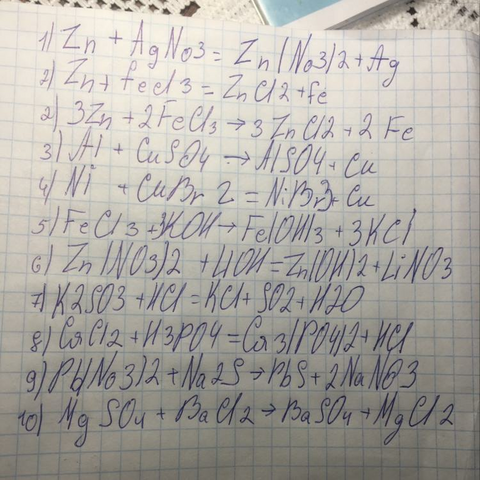 1) Zn + AgNo3 = Zn(No3)2 + Ag
2) Zn + fecl3 = ZnCl2 + fe
2) 3Zn + 2FeCl3 → 3ZnCl2 + 2Fe
3) Al + CuSO4 → AlSO4 + Cu
4) Ni + CuBr2 = NiBr3 + Cu
5) FeCl3 + 3KOH → Fe(OH)3 + 3KCl
6) Zn(NO3)2 + LiOH = Zn(OH)2 + LiNO3
7) K2SO3 + HCl = KCl + SO2 + H2O
8) CaCl2 + H3PO4 = Ca3(PO4)2 + HCl
9) Pb(No3)2 + Na2S → PbS + 2NaNO3
10) MgSO4 + BaCl2 → BaSO4 + MgCl2